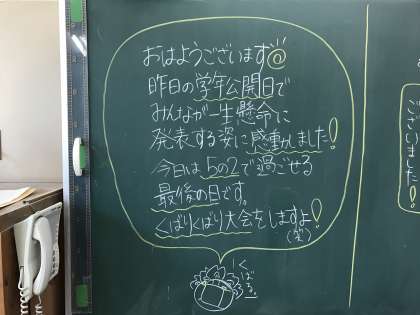 おはようございます@
昨日の学年公開日で
みんなが一生懸命に
発表する姿に感動しました!
今日は5の2で過ごせる
最後の日です。
くばりくばり大会をしますよ!
(笑)
くばる。
ございました!